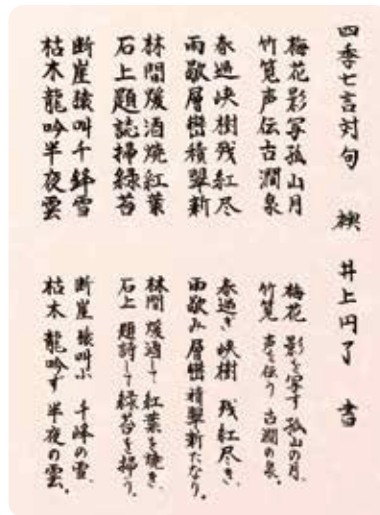 四季七言対句　襖　井上円了　書
梅花影写孤山月
竹筧声伝古澗泉
春過峡樹残紅尽
雨歇層巒積翠新
林間煖酒焼紅葉
石上題詩掃緑苔
断崖猿叫千峰雪
枯木龍吟半夜雲
梅花 影を写す 孤山の月、
竹筧 声を伝う 古澗の泉。
春過ぎ 峡樹 残紅尽き、
雨歇み 層巒 積翠新たなり。
林間 煖酒して 紅葉を焼き、
石上 題詩して 緑苔を掃う。
断崖 猿叫ぶ 千峰の雪、
枯木 龍吟ず 半夜の雲。